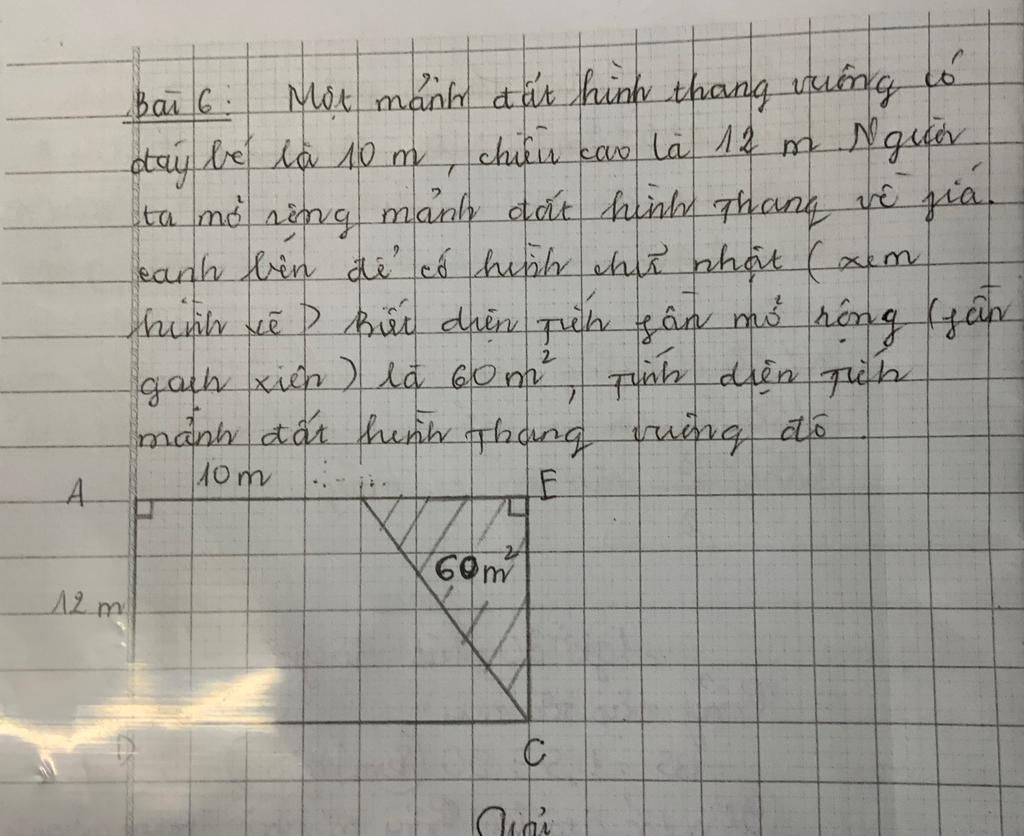 Bài 6: Một mảnh đất hình thang vuông có
đáy bé là 10 m, chiều cao là 12 m. Người
ta mở rộng mảnh đất hình thang về phía
cạnh bên để có hình chữ nhật (xem
hình vẽ) Biết diện tích phần mở rộng (phần
gạch xiên) là 60m², Tính diện tích
mảnh đất hình thang vuông đó.
10m
A
E
60m²
12 m
D
C
Giải